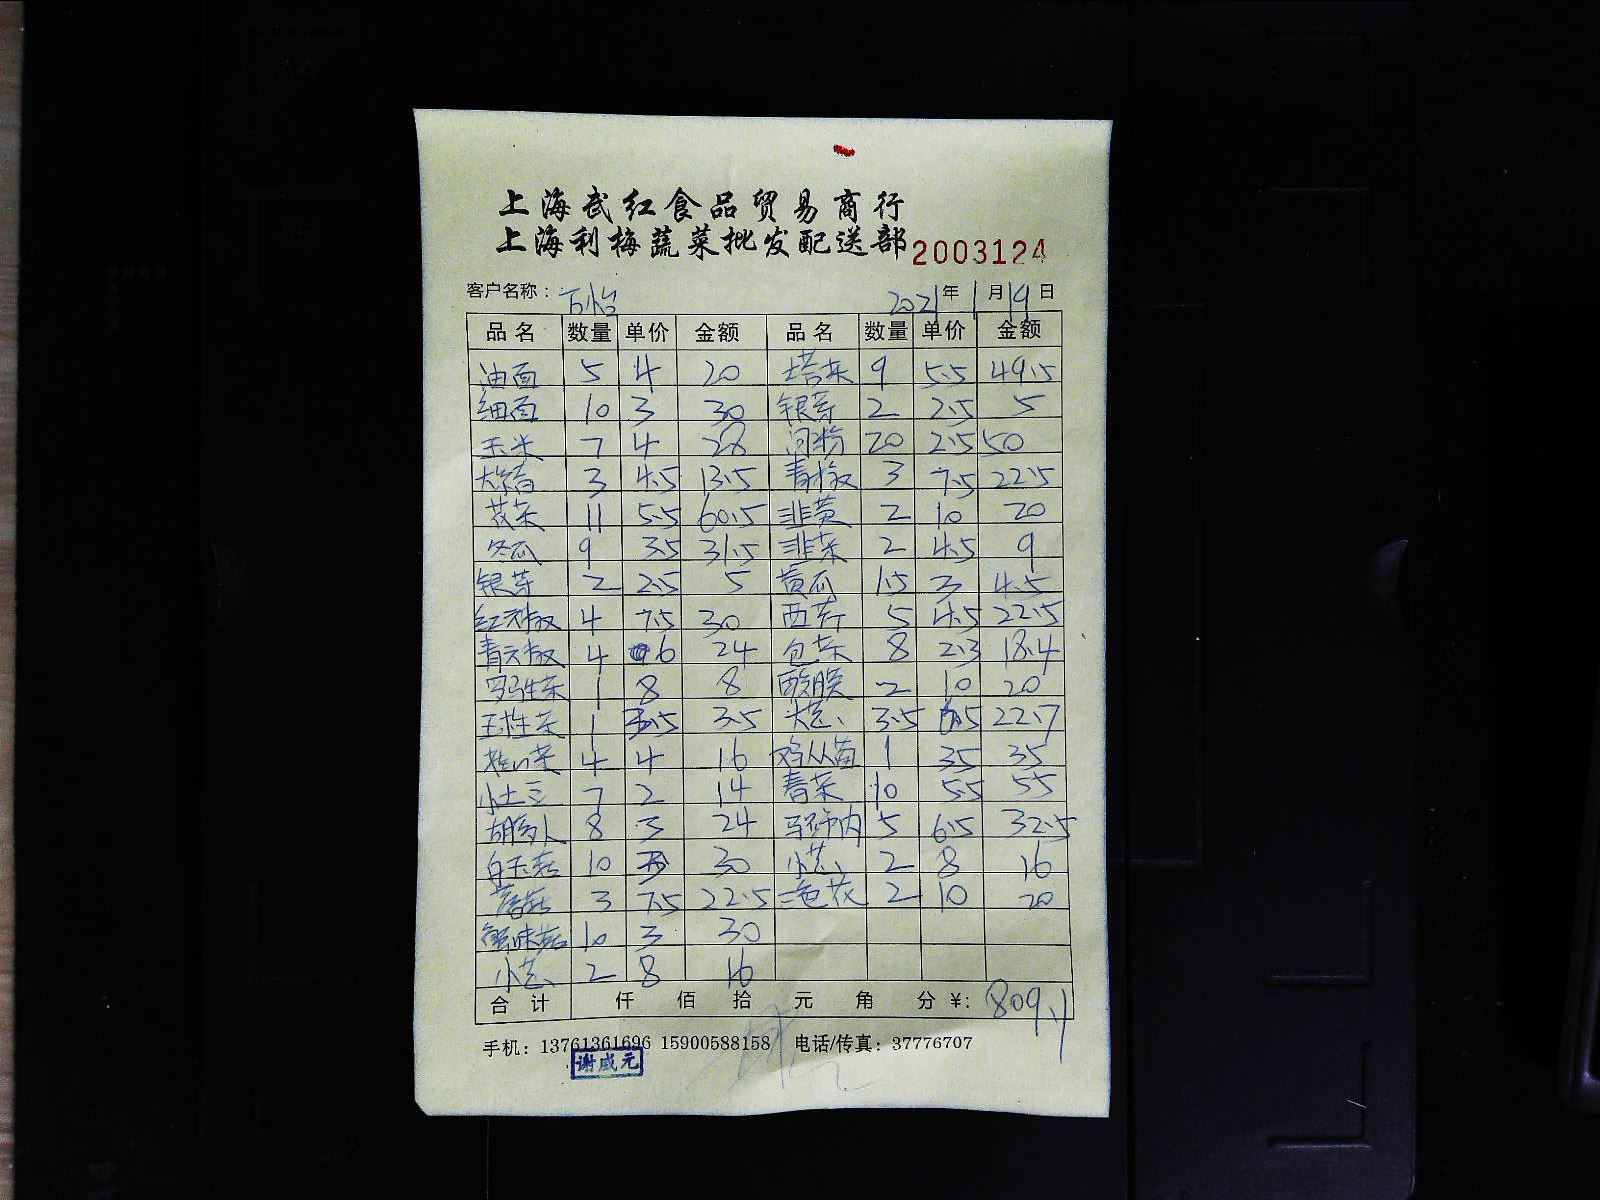 上海武红食品贸易商行
上海利梅蔬菜批发配送部 2003124
客户名称： 2021年1月19日
品名 数量 单价 金额 品名 数量 单价 金额
油面 5 4 20 塔菜 9 5.5 49.5
细面 10 3 30 银芽 2 2.5 5
玉米 7 4 28 河粉 20 2.5 50
3 4.5 13.5 青椒 3 7.5 22.5
花菜 11 5.5 60.5 韭黄 2 10 20
冬瓜 9 3.5 31.5 韭菜 2 4.5 9
银芽 2 2.5 5 黄瓜 1.5 3 4.5
红尖椒 4 7.5 30 西芹 5 4.5 22.5
青尖椒 4 6 24 包菜 8 2.3 18.4
罗马生菜 1 8 8 2 10 20
1 3.5 3.5 大葱 3.5 6.5 22.7
4 4 16 鸡从菌 1 35 35
小土豆 7 2 14 青菜 10 5.5 55
胡萝卜 8 3 24 5 6.5 32.5
白玉菇 10 3 30 小葱 2 8 16
蘑菇 3 7.5 22.5 三色花 2 10 20
蟹味菇 10 3 30
小葱 2 8 16
合计 仟 佰 拾 元 角 分 ¥: 809.1
手机：13761361696 15900588158 电话/传真：37776707
谢成元